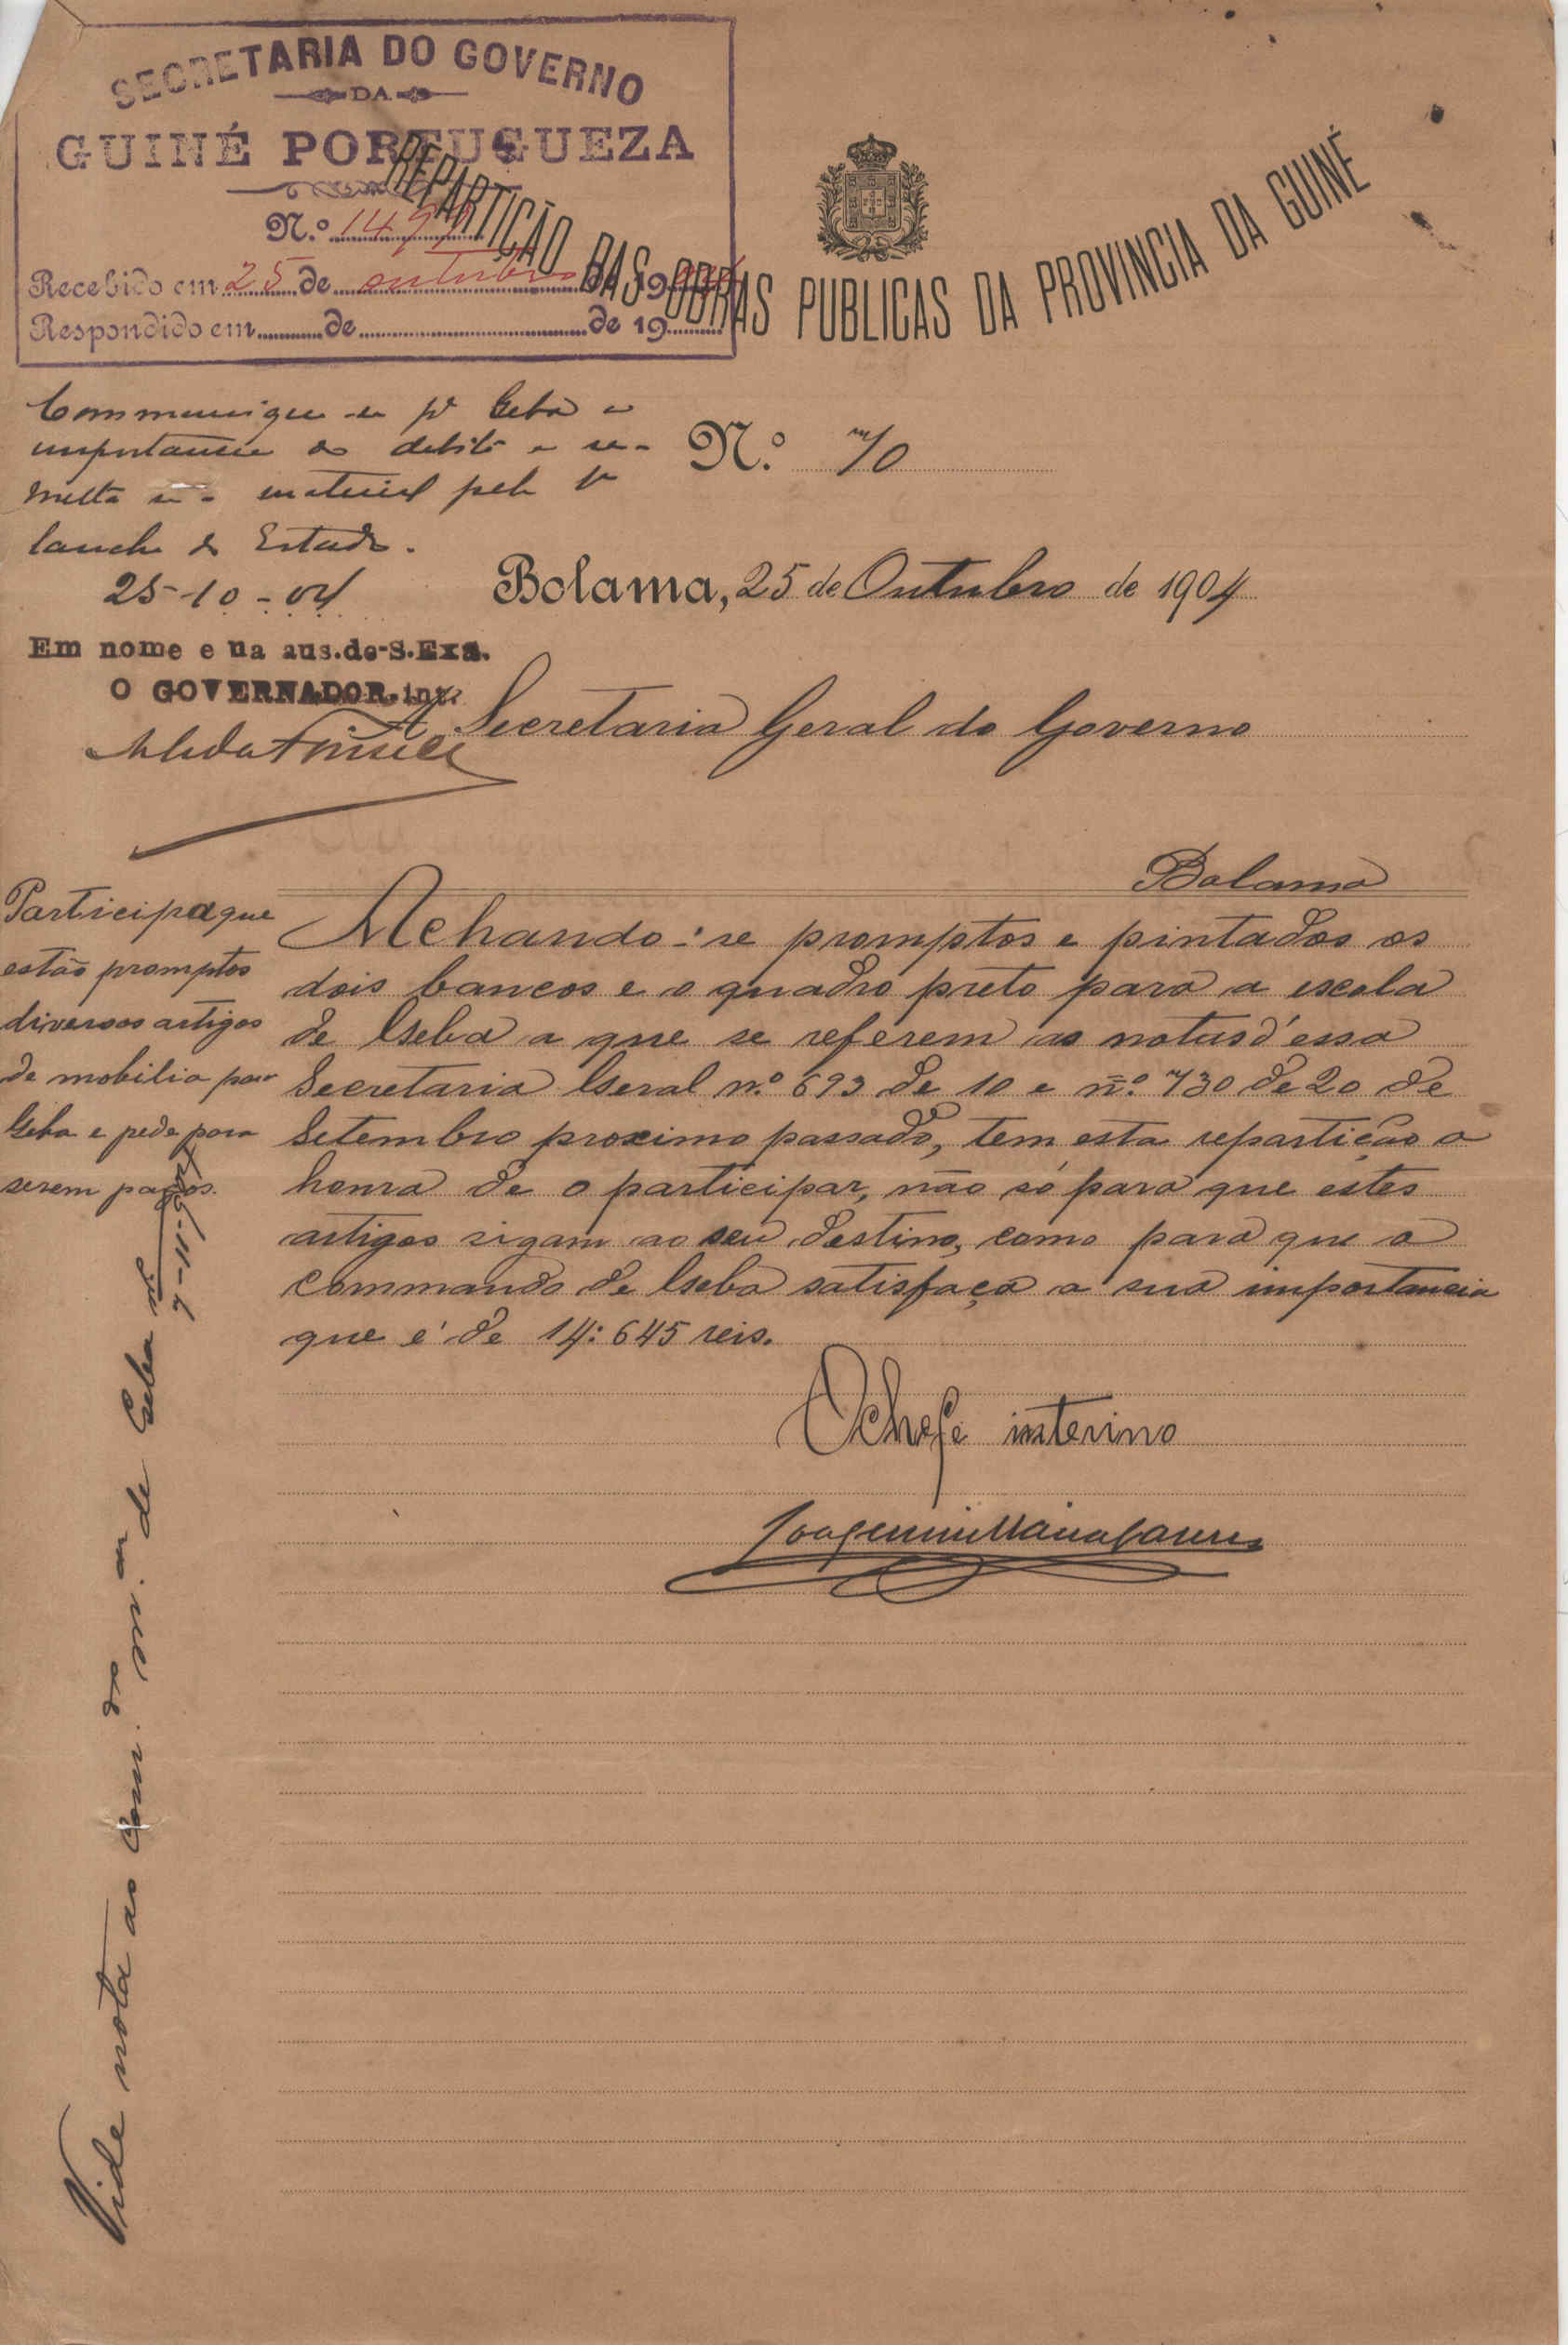 SECRETARIA DO GOVERNO
DA
GUINÉ PORTUGUEZA
N.º 149
Recebido em 25 de outubro de 1904
Respondido em de de 19
REPARTIÇÃO DAS OBRAS PUBLICAS DA PROVINCIA DA GUINÉ
Communique-se pª Geba a
importancia do debito e re-
metta-se o material pela 1ª
lancha do Estado.
25-10-04
Em nome e na aus. de S. Exa.
O GOVERNADOR, int.
N.º 70
Bolama, 25 de Outubro de 1904
Á Secretaria Geral do Governo
Bolama
Participa que
estão promptos
diversos artigos
de mobilia para
Geba e pede para
serem pagos.
Achando-se promptos e pintados os
dois bancos e o quadro preto para a escola
de Geba a que se referem as notas d'essa
Secretaria Geral n.º 693 de 10 e n.º 730 de 20 de
Setembro proximo passado, tem esta repartição a
honra de o participar, não só para que estes
artigos sigam ao seu destino, como para que o
commando de Geba satisfaça a sua importancia
que é de 14:645 reis.
O chefe interino
Vide nota ao Com. do m. or de Geba nº
7-11-904